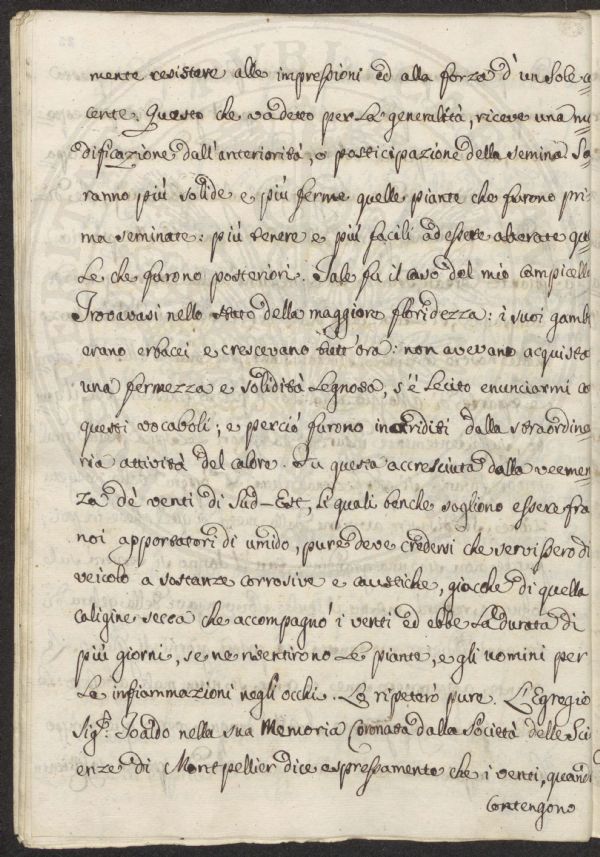 mente resistere alle impressioni ed alla forza d'un Sole co
cente. Questo che vadetto per La generalità, riceve una mo
dificazione dall'anteriorità, o posticipazione della semina. Sa
ranno più solide e più ferme quelle piante che furono pri
ma seminate: più tenere e più facili ad essere alterate quel
Le che furono posteriori. Tale fa il caso del mio campicello
Trovavasi nello stato della maggiore floridezza: i suoi gambi
erano erbacei e crescevano tutt'ora: non avevano acquistato
una fermezza e solidità Legnosa, s'è Lecito enunciarmi con
questi vocaboli; e perciò furono inariditi dalla straordina
ria attività del calore. Fu questa accresciuta dalla veemen
za dè venti di Sud-Est, Li quali benche sogliono essere fra
noi apportatori di umido, pure deve credersi che servissero di
veicolo a sostanze corrosive e caustiche, giacche di quella
caligine secca che accompagnò i venti ed ebbe La durata di
più giorni, se ne risentirono Le piante, e gli uomini per
Le infiammazioni negli occhi. Lo ripeterò pure. L'Egregio
Sig.r Toaldo nella sua Memoria Coronata dalla Società delle Sci
enze di Montpellier dice espressamente che i venti, quando
Contengono